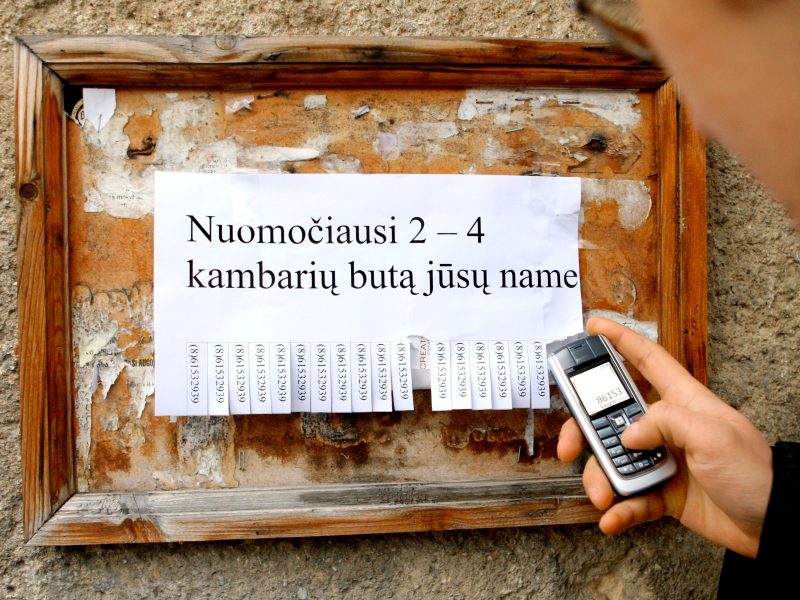 Nuomočiausi 2 – 4
kambarių butą jūsų name
(8)61532939
(8)61532939
(8)61532939
(8)61532939
(8)61532939
(8)61532939
(8)61532939
(8)61532939
(8)61532939
(8)61532939
(8)61532939
CREAT
(8)61532939
(8)61532939
(8)61532939
(8)61532939
(8)61532939
(8)61532939
86153